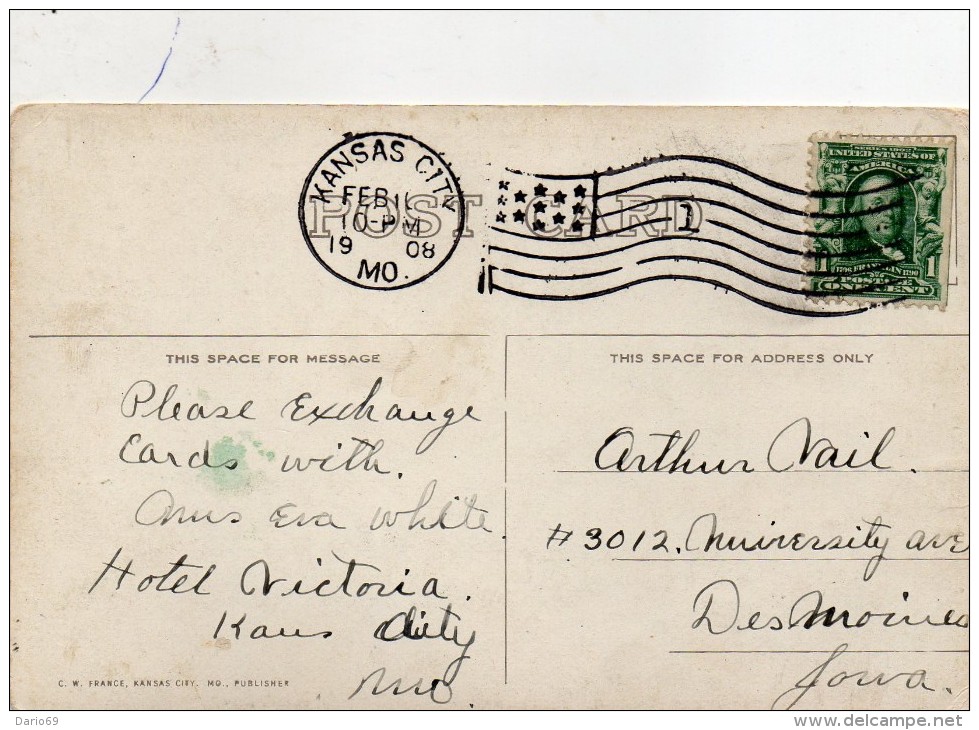 KANSAS CITY
FEB 1
10-PM
19 08
MO.
1
POST CARD
SERIES 1902
UNITED STATES OF
AMERICA
1706 FRANKLIN 1790
POSTAGE
1 ONE CENT 1
THIS SPACE FOR MESSAGE
Please Exchange
Cards with.
Miss Eva White
Hotel Victoria.
Kans City
Mo
C. W. FRANCE, KANSAS CITY, MO., PUBLISHER
THIS SPACE FOR ADDRESS ONLY
Arthur Vail.
# 3012. University ave
Des Moines
Iowa.
Dario69
www.delcampe.net